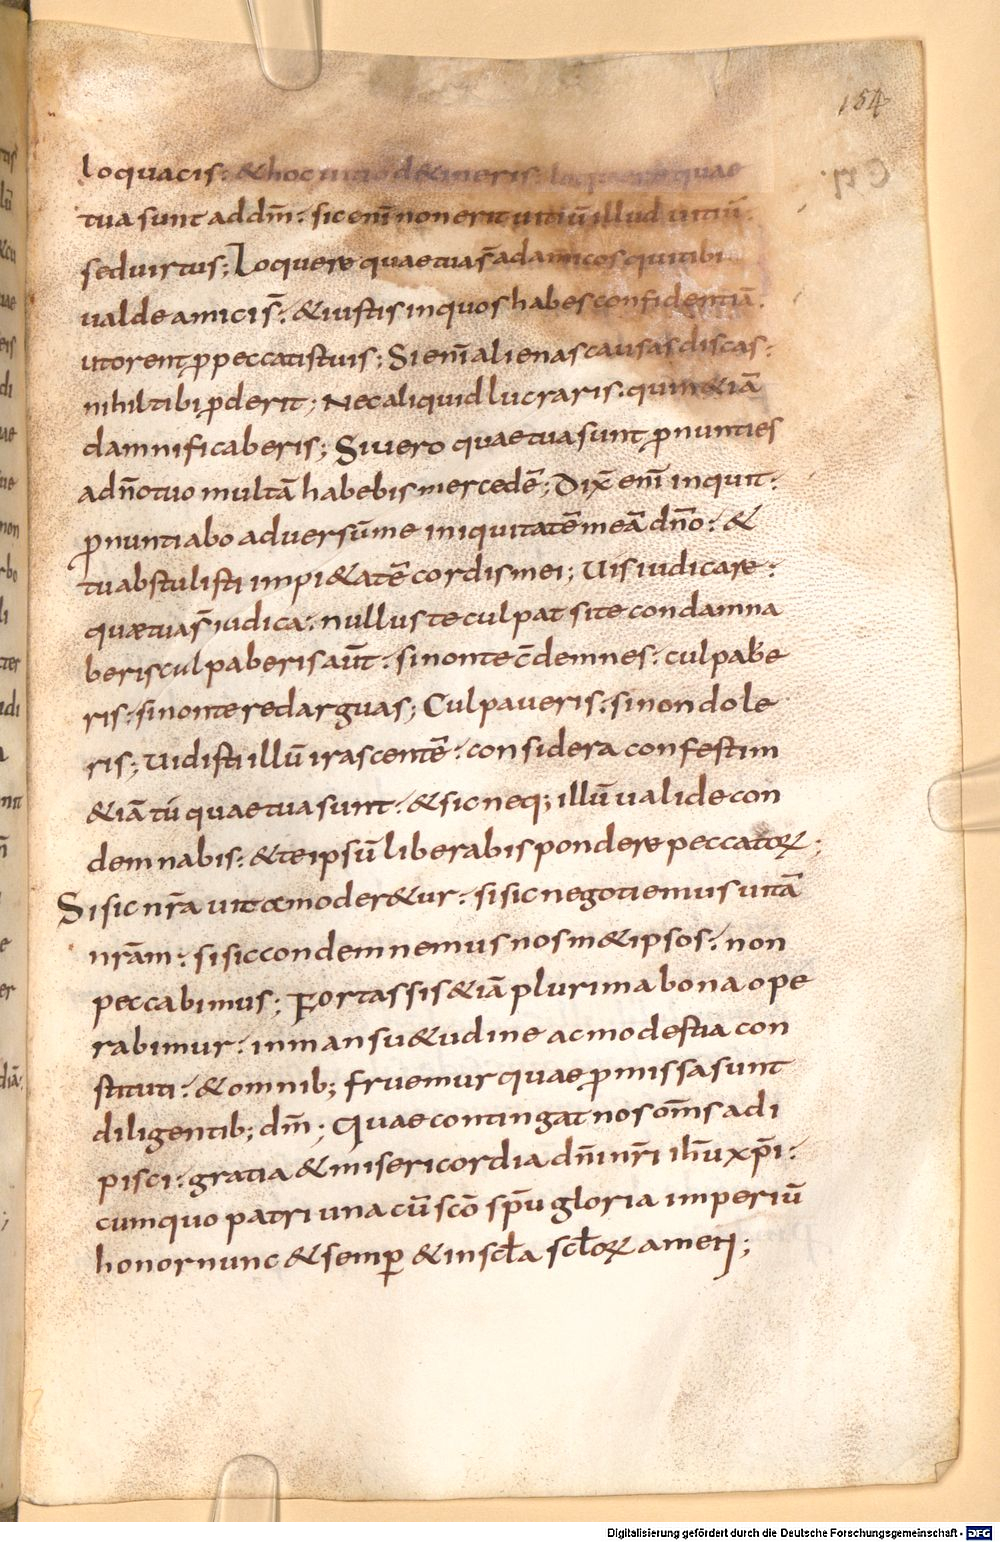 154
loquacis: & hoc uitio d&ineris: loquere quae
tua sunt ad dm̄: sic enī non erit uitiū illud uitiū
sed uirtus; Loquere quae tua s̄ ad amicos qui tibi
ualde amici s̄: & iustis in quos habes confidentiā.
ut orent ꝓ peccatis tuis; Si enī alienas causas dicas:
nihil tibi ꝓderit; Nec aliquid lucraris. quin &iā
damnificaberis; Si uero quae tua sunt ꝓnunties
ad dn̄o tuo multā habebis mercedē; Dix̄ enī inquit:
ꝓnuntiabo aduersū me iniquitatē meā dn̄o: &
tu abstulisti impi&atē cordis mei; Uis iudicare:
quae tua s̄ iudica: nullus te culpat si te condamna
beris culpaberis aūt: si non te c̄demnes: culpabe
ris: si non te redarguas; Culpaueris: si non dole
ris; Uidisti illū irascentē: considera confestim
&iā tú quae tua sunt: & sic neq; illū ualide con
demnabis: & te ipsū liberabis pondere peccatoꝝ;
Si sic nr̄a uita moder&ur: si sic negotiemus uitā
nrām: si sic condemnemus nosm&ipsos: non
peccabimus; Fortassis &iā plurima bona ope
rabimur: in mansu&udine ac modestia con
stituti: & omnib; fruemur quae ꝓmissa sunt
diligentib; dm̄; Quae contingat nos om̄s adi
pisci: gratia & misericordia dn̄i nr̄i ih̄u xp̄i:
cum quo patri una cū sc̄o sp̄u gloria imperiū
honor nunc & semꝑ & in scl̄a scl̄oꝝ amen;
Digitalisierung gefördert durch die Deutsche Forschungsgemeinschaft - DFG